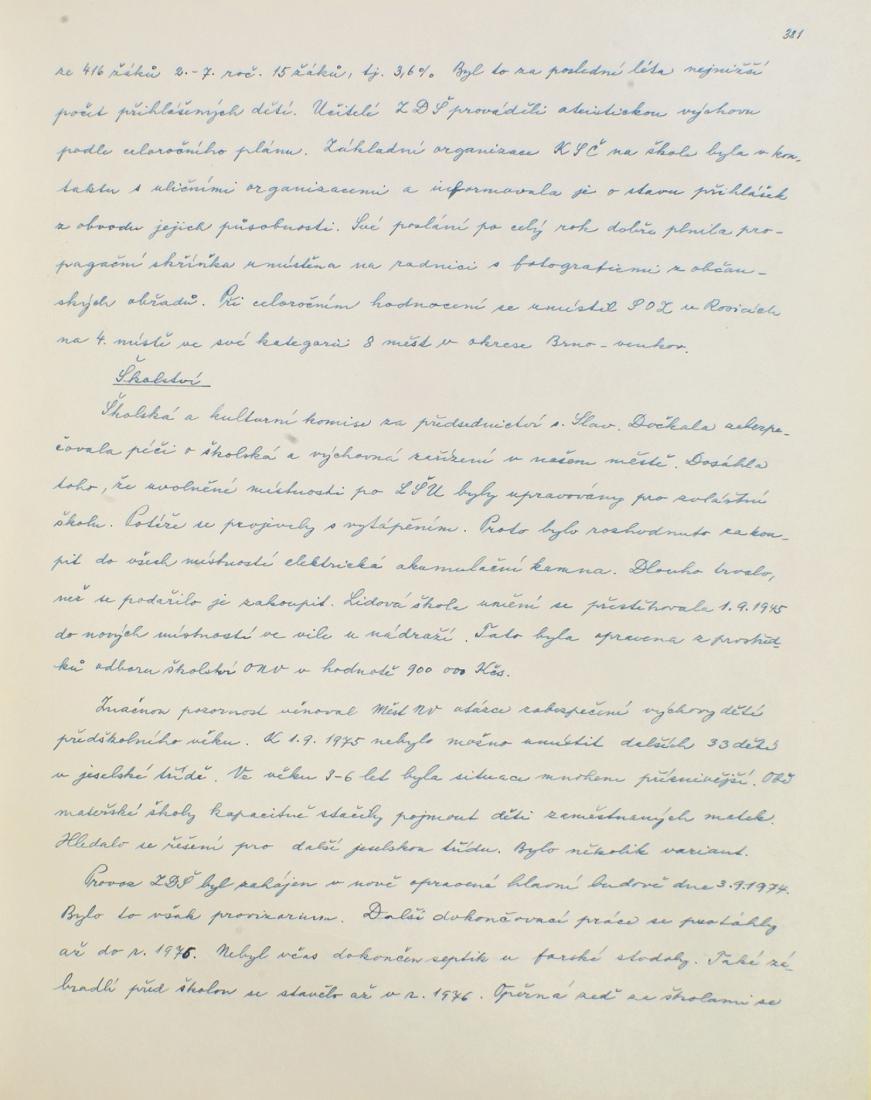 381
ze 416 žáků 2.-7. roč. 15 žáků, tj. 3,6%. Byl to za poslední léta nejnižší
počet přihlášených dětí. Učitelé ZDŠ prováděli ateistickou výchovu
podle celoročního plánu. Základní organizace KSČ na škole byla v kon-
taktu s uličními organizacemi a informovala je o stavu přihlášek
z obvodu jejich působnosti. Své poslání po celý rok dobře plnila pro-
pagační skříňka umístěna na radnici s fotografiemi z občan-
ských obřadů. Při celoročním hodnocení se umístil SPOZ v Rosicích
na 4. místě ve své kategorii 8 měst v okrese Brno-venkov.
Školství
Školská a kulturní komise za předsednictví s. Slav. Dočkala zabezpe-
čovala péči o školská a výchovná zařízení v našem městě. Dosáhla
toho, že uvolněné místnosti po LŠU byly upravovány pro zvláštní
školu. Potíže se projevily s vytápěním. Proto bylo rozhodnuto zakou-
pit do všech místností elektrická akumulační kamna. Dlouho trvalo,
než se podařilo je zakoupit. Lidová škola umění se přestěhovala 1.9.1975
do nových místností ve vile u nádraží. Tato byla opravena z prostřed-
ků odboru školství ONV v hodnotě 900 000 Kčs.
Značnou pozornost věnoval Měst NV otázce zabezpečení výchovy dětí
předškolního věku. K 1.9.1975 nebylo možno umístit dalších 33 dětí
v jeselské třídě. Ve věku 3-6 let byla situace mnohem příznivější. Obě
mateřské školy kapacitně stačily pojmout děti zaměstnaných matek.
Hledalo se řešení pro další jeselskou třídu. Bylo několik variant.
Provoz ZDŠ byl zahájen v nově opravené hlavní budově dne 3.9.1974.
Bylo to však provizorium. Další dokončovací práce se protáhly
až do r. 1976. Nebyl včas dokončen septik u farské stodoly. Také zá-
bradlí před školou se stavělo až v r. 1976. Opěrná zeď za školami se